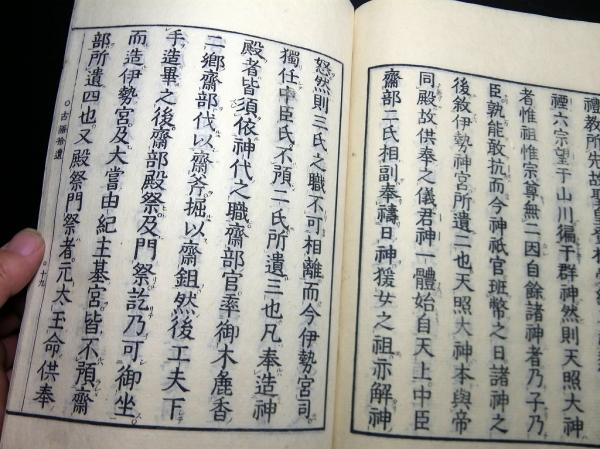 禮教所先故聖皇登極
禋六宗望于山川徧于群神然則天照大神
者惟祖惟宗尊無二因自餘諸神者乃子乃
臣孰能敢抗而今神祇官班幣之日諸神之
後敘伊勢神宮所遺二也天照大神本與帝
同殿故供奉之儀君神一體始自天上中臣
齋部二氏相副奉禱日神猨女之祖亦解神
怒然則三氏之職不可相離而今伊勢宮司
獨任中臣氏不預二氏所遺三也凡奉造神
殿者皆須依神代之職齋部官率御木麁香
二鄉齋部伐以齋斧堀以齋鉏然後工夫下
手造畢之後齋部殿祭及門祭訖乃可御坐
而造伊勢宮及大嘗由紀主基宮皆不預齋
部所遺四也又殿祭門祭者元太玉命供奉
○古語拾遺
○十九